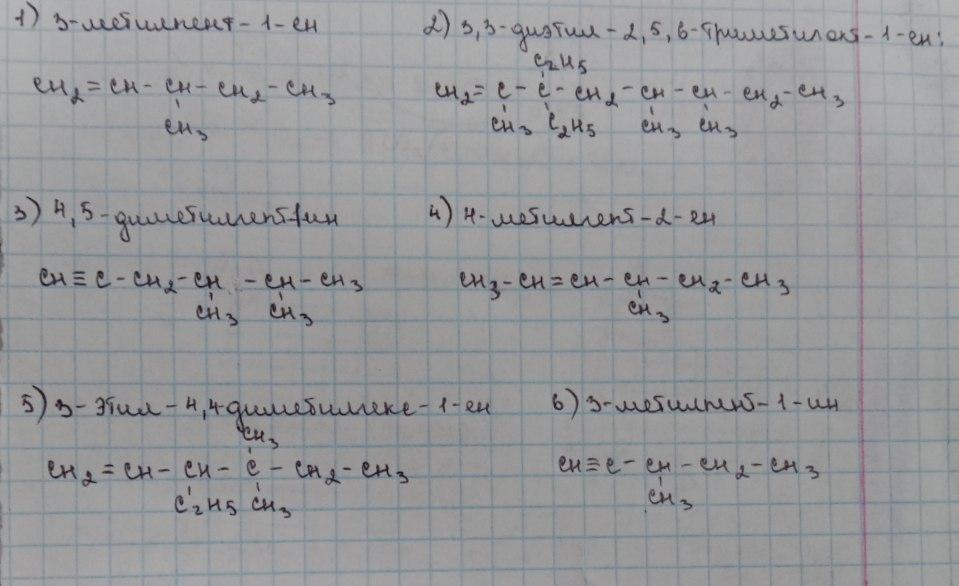 1) 3-метилпент-1-ен
CH2=CH-CH-CH2-CH3
CH3
2) 3,3-диэтил-2,5,6-триметилокт-1-ен:
C2H5
CH2=C-C-CH2-CH-CH-CH2-CH3
CH3 C2H5 CH3 CH3
3) 4,5-диметилгепт-1ин
CH≡C-CH2-CH-CH-CH3
CH3 CH3
4) 4-метилгепт-2-ен
CH3-CH=CH-CH-CH2-CH3
CH3
5) 3-этил-4,4-диметилгекс-1-ен
CH3
CH2=CH-CH-C-CH2-CH3
C2H5 CH3
6) 3-метилпент-1-ин
CH≡C-CH-CH2-CH3
CH3